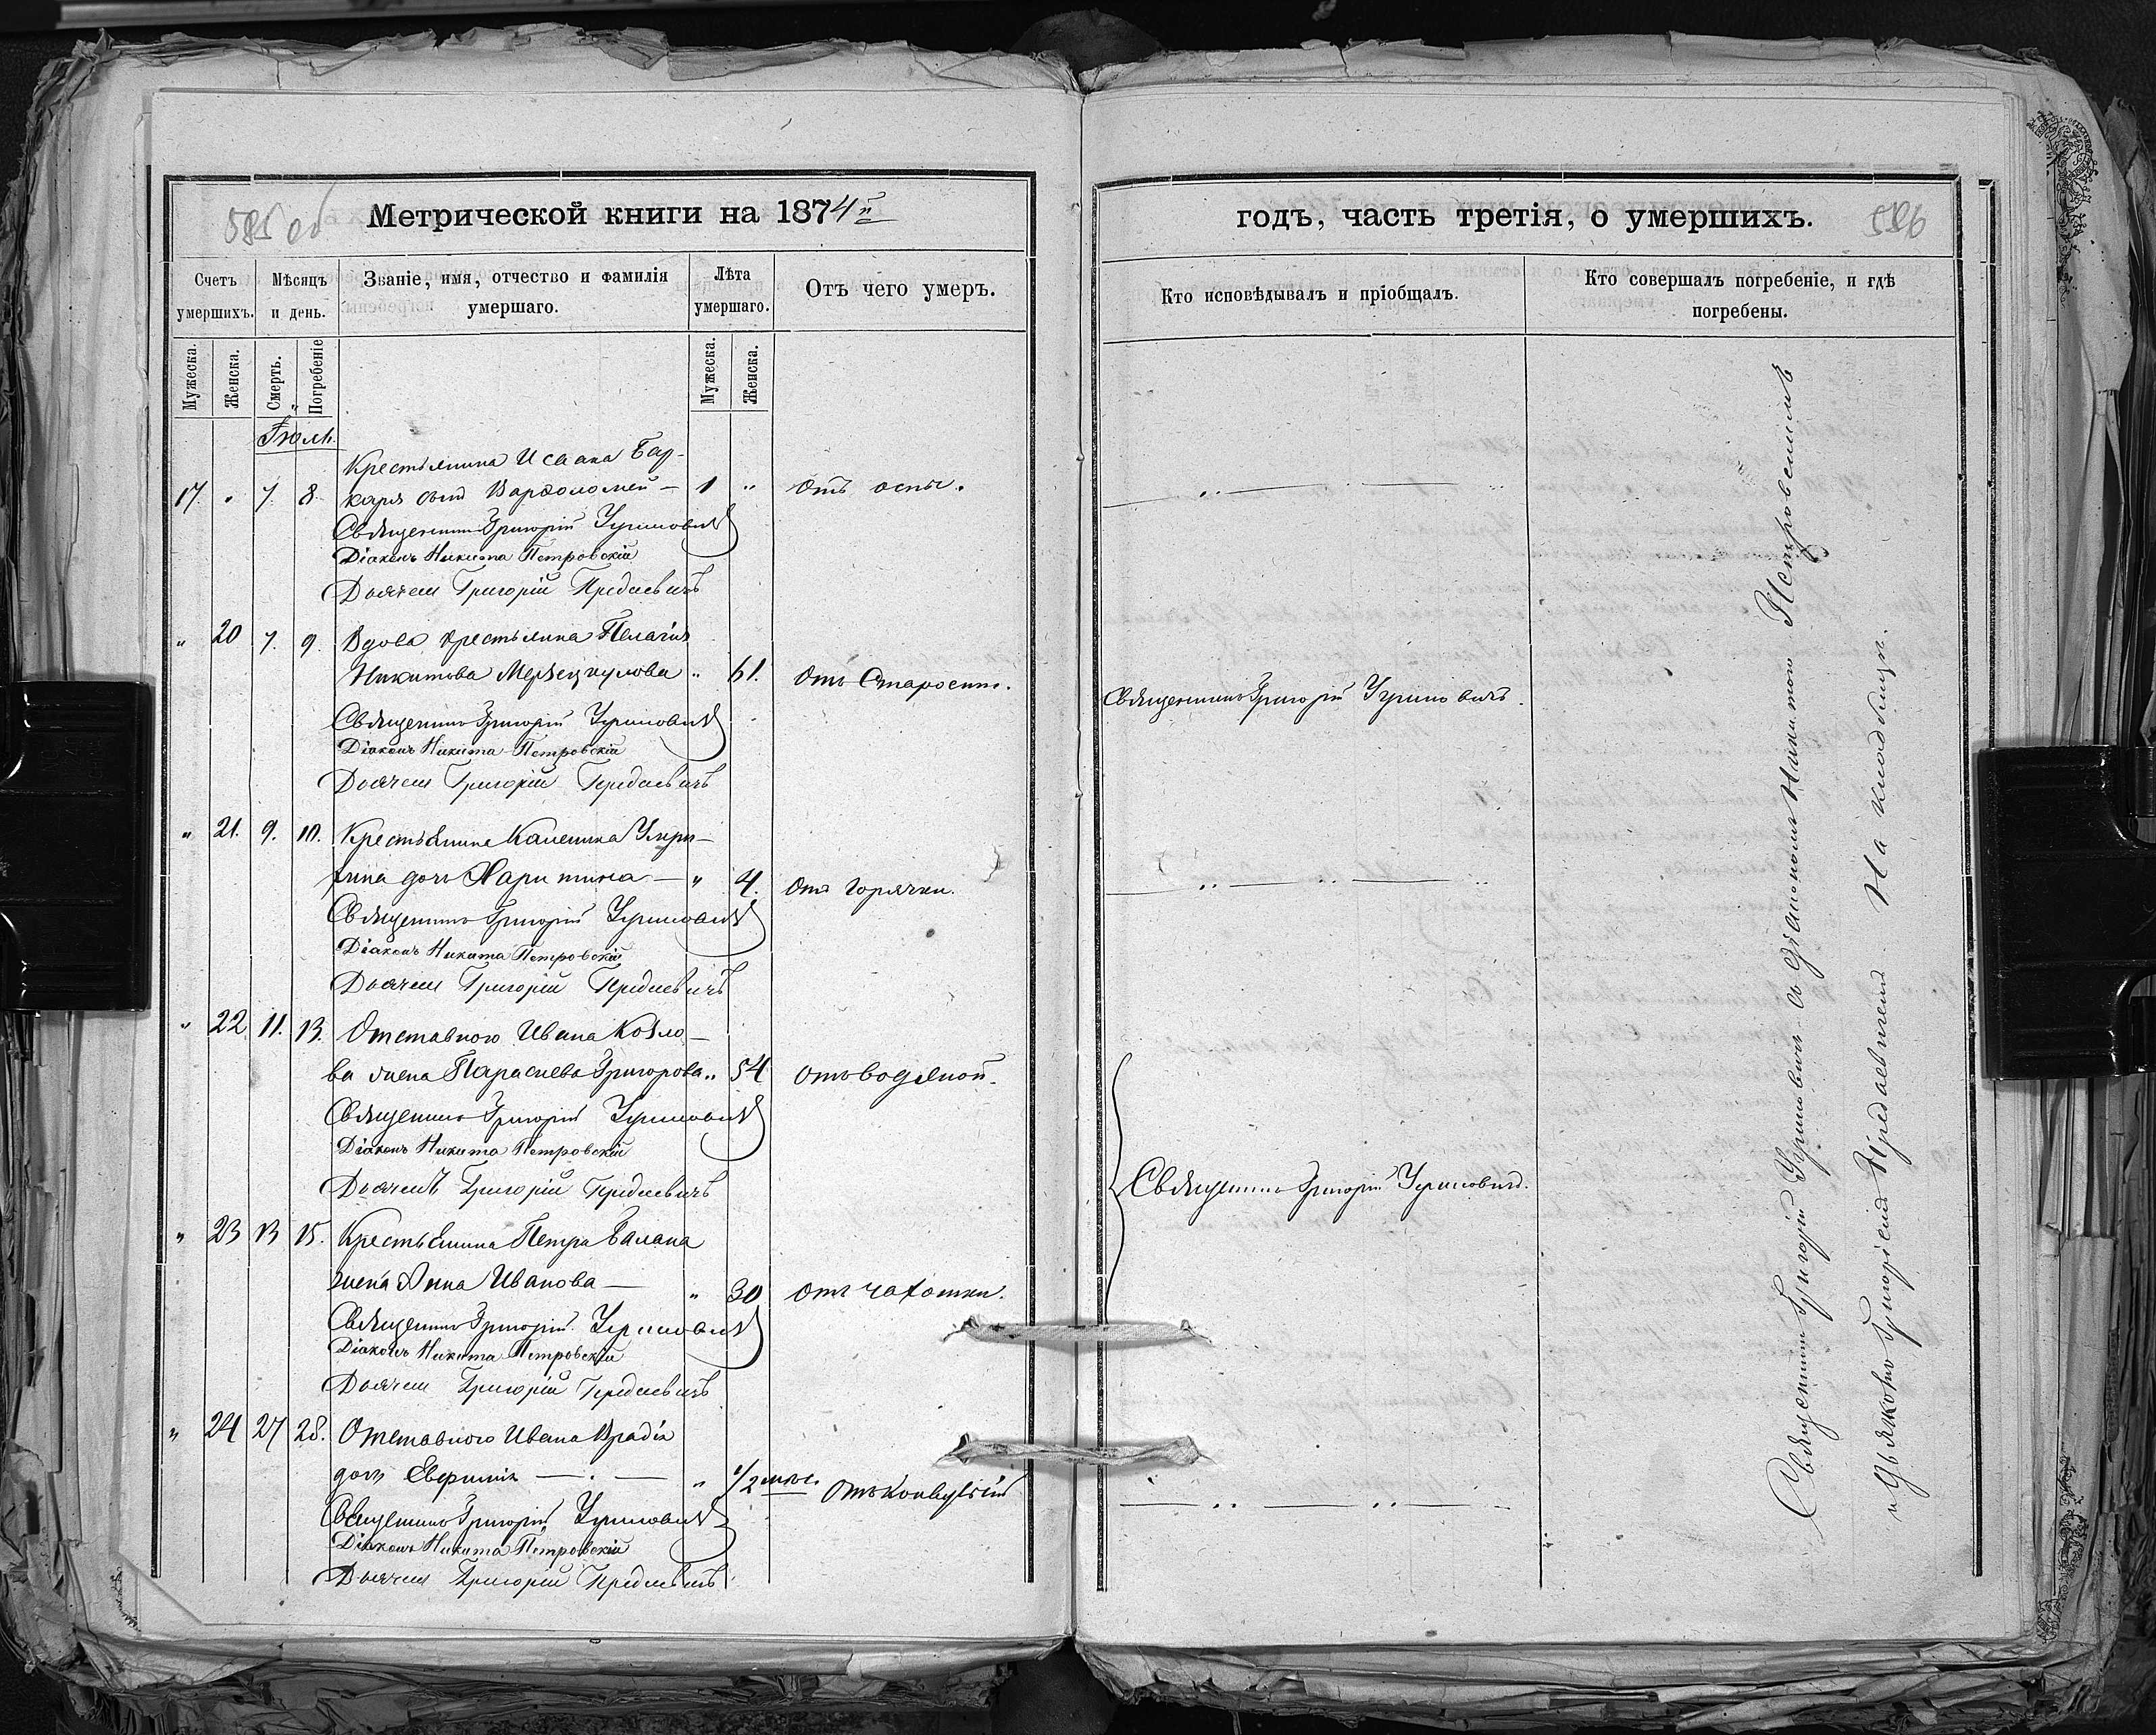 585 об
Метрической книги на 1874й
Счетъ умершихъ.
Мѣсяцъ и день.
Званіе, имя, отчество и фамилія умершаго.
Лѣта умершаго.
Отъ чего умеръ.
Мужеска.
Женска.
Смерть.
Погребеніе
Мужеска.
Женска.
Іюль.
Крестьянина Исаака Бар-
17. " 7. 8. каря сынъ Варѳоломей — 1 " отъ оспы.
Священникъ Григорій Уриновичъ
Діаконъ Никита Петровскій
Дьячекъ Григорій
" 20 7. 9. Вдова крестьянина Пелагія
Никитова " 61. отъ Старости.
Священникъ Григорій Уриновичъ
Діаконъ Никита Петровскій
Дьячекъ Григорій
" 21. 9. 10. Крестьянина Каленика
дочь Харитина — " 4. отъ горячки.
Священникъ Григорій Уриновичъ
Діаконъ Никита Петровскій
Дьячекъ Григорій
" 22 11. 13. Отставного Ивана Козло-
ва жена Параскева Григорова " 54 отъ водяной.
Священникъ Григорій Уриновичъ
Діаконъ Никита Петровскій
Дьячекъ Григорій
" 23 13 15. Крестьянина Петра Балана
жена Анна Иванова — " 30 отъ чахотки.
Священникъ Григорій Уриновичъ
Діаконъ Никита Петровскій
Дьячекъ Григорій
" 24 27 28. Отставного Ивана Врадія
дочь Евфимія — . — " 1/2 отъ конвульсій
Священникъ Григорій Уриновичъ
Діаконъ Никита Петровскій
Дьячекъ Григорій
годъ, часть третія, о умершихъ.
586
Кто исповѣдывалъ и пріобщалъ.
Кто совершалъ погребеніе, и гдѣ погребены.
Священникъ Григорій Уриновичъ.
Священникъ Григорій Уриновичъ.
Священникъ Григорій Уриновичъ съ діакономъ Никитою Петровскимъ
и Дьякомъ Григоріемъ На кладбищѣ.